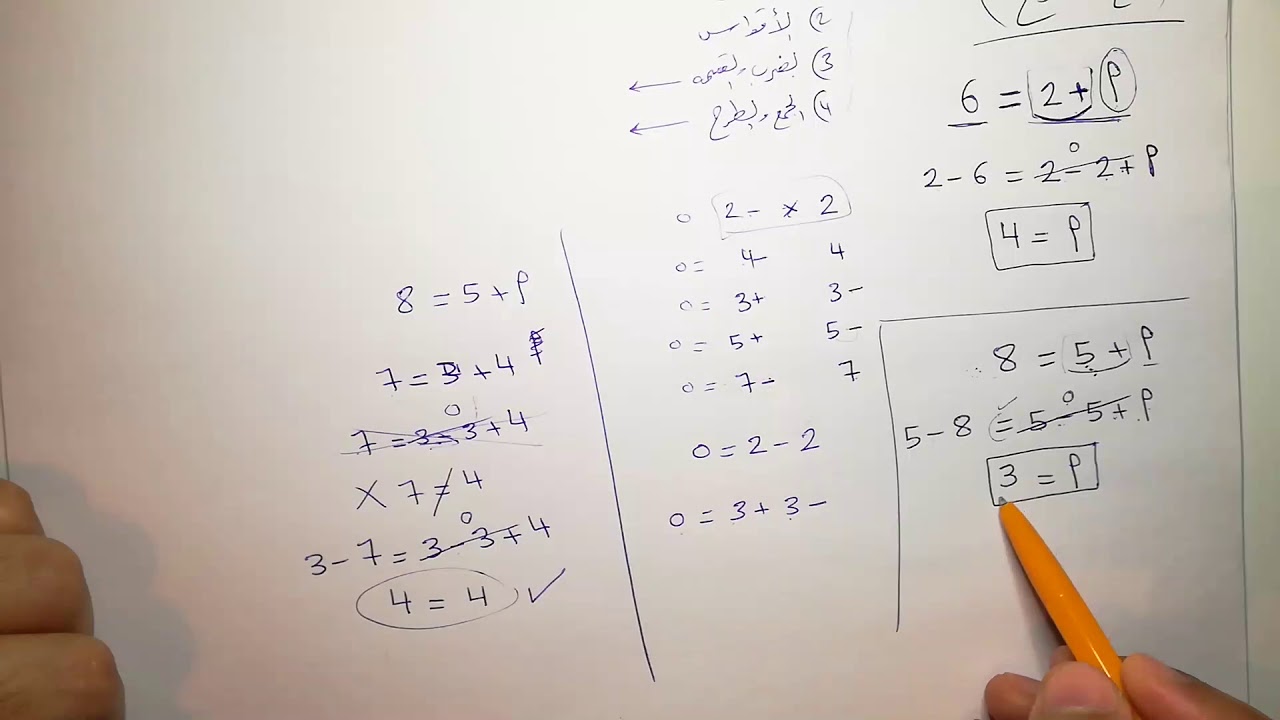 2) الأقواس
3) الضرب والقسمة ←
4) الجمع والطرح ←
6 = 2 + م
2 - 6 = 2 - 2 + م
0
4 = م
8 = 5 + م
5 - 8 = 5 - 5 + م
0
3 = م
0 2 - × 2
0 = 4 - 4
0 = 3 + 3 -
0 = 5 + 5 -
0 = 7 - 7
0 = 2 - 2
0 = 3 + 3 -
8 = 5 + م
7 = 3 + 4
0
7 = 3 - 3 + 4
× 7 ≠ 4
0
3 - 7 = 3 - 3 + 4
4 = 4 ✓